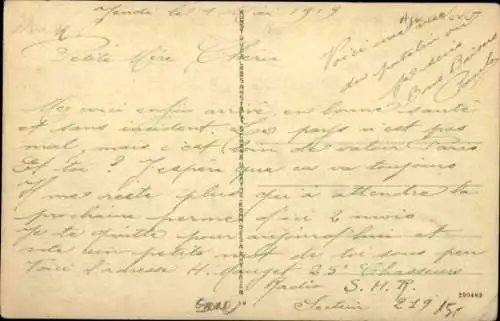 Jeudi le 1 Mai 1919
Petite Mère Chérie
Me voici enfin arrivé en bonne santé
et sans incident. Le pays n'est pas
mal, mais c'est loin de valoir Paris
Et toi ? J'espère que ca va toujours
Il me reste plus qu'à attendre ta
prochaine perme d'ici 2 mois
Je te quitte pour aujourd'hui et
un petit mot de toi sous peu
Voici l'adresse H. 25e Chasseurs
Radio S. H. R.
Secteur 219
Voici une vue
du patelin où
je suis
Bons Baisers
200483